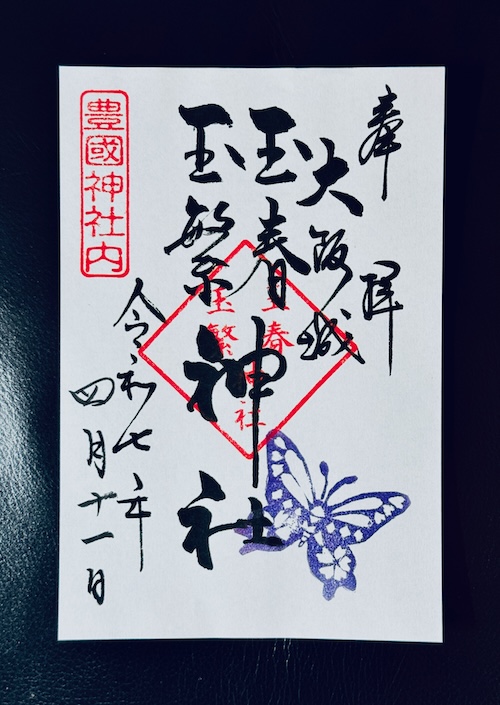 奉拝
大阪城
玉春
玉繁
神社
令和七年
四月十一日
豊國神社内
玉春
玉繁
神社